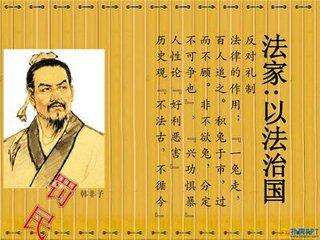 法家:以法治国
反对礼制
法律的作用:『一兔走,
百人追之。积兔于市,过
而不顾。非不欲兔,分定
不可争也』,『兴功惧暴』
人性论『好利恶害』
历史观『不法古,不循今』
韩非子
罚民